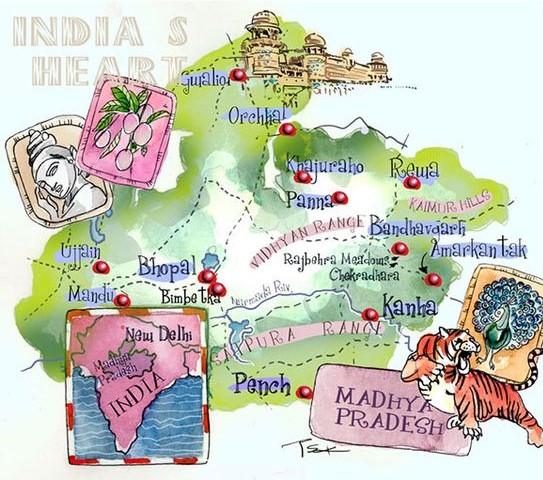 INDIA S
HEART
Gwalior
Orchha
Khajuraho
Rewa
Panna
KAIMUR HILLS
VIDHYAN RANGE
Bandhavgarh
Rajbehra Meadows
Chekradhara
Amarkantak
Ujjain
Bhopal
Mandu
Bimbetka
Narmada Riv.
Kanha
SATPURA RANGE
New Delhi
Madhya
Pradesh
INDIA
Pench
MADHYA
PRADESH